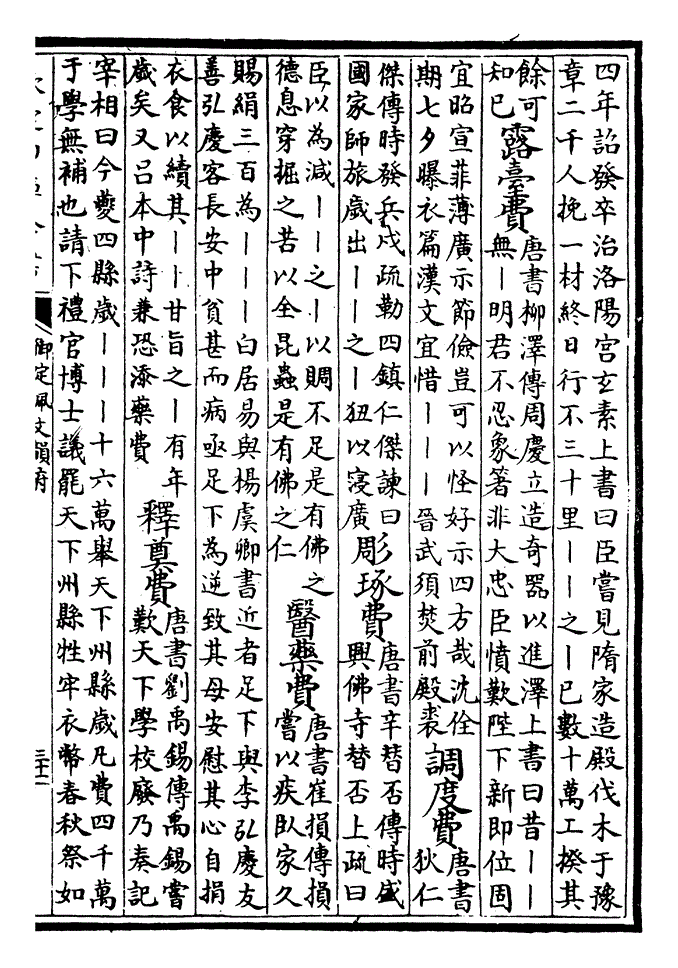 四年詔發卒治洛陽宫玄素上書曰臣嘗見隋家造殿伐木于豫
章二千人挽一材終日行不三十里――之―已數十萬工揆其
餘可
知已
露臺費
唐書柳澤傳周慶立造奇器以進澤上書曰昔――
無―明君不忍象箸非大忠臣憤歎陛下新即位固
宜昭宣菲薄廣示節儉豈可以怪好示四方哉沈佺
期七夕曝衣篇漢文宜惜―――晉武須焚前殿裘
調度費
唐書
狄仁
傑傳時發兵戍疏勒四鎮仁傑諫曰
國家師旅歲出――之―狃以寖廣
彫琢費
唐書辛替否傳時盛
興佛寺替否上疏曰
臣以為減――之―以賙不足是有佛之
德息穿掘之苦以全昆蟲是有佛之仁
醫藥費
唐書崔損傳損
嘗以疾臥家久
賜絹三百為―――白居易與楊虞卿書近者足下與李弘慶友
善弘慶客長安中貧甚而病亟足下為逆致其母安慰其心自捐
衣食以續其――甘旨之―有年
歲矣又呂本中詩兼恐添藥費
釋奠費
唐書劉禹錫傳禹錫嘗
歎天下學校廢乃奏記
宰相曰今夔四縣歲―――十六萬舉天下州縣歲凡費四千萬
于學無補也請下禮官博士議罷天下州縣牲牢衣幣春秋祭如
御定佩文韻府
三十二